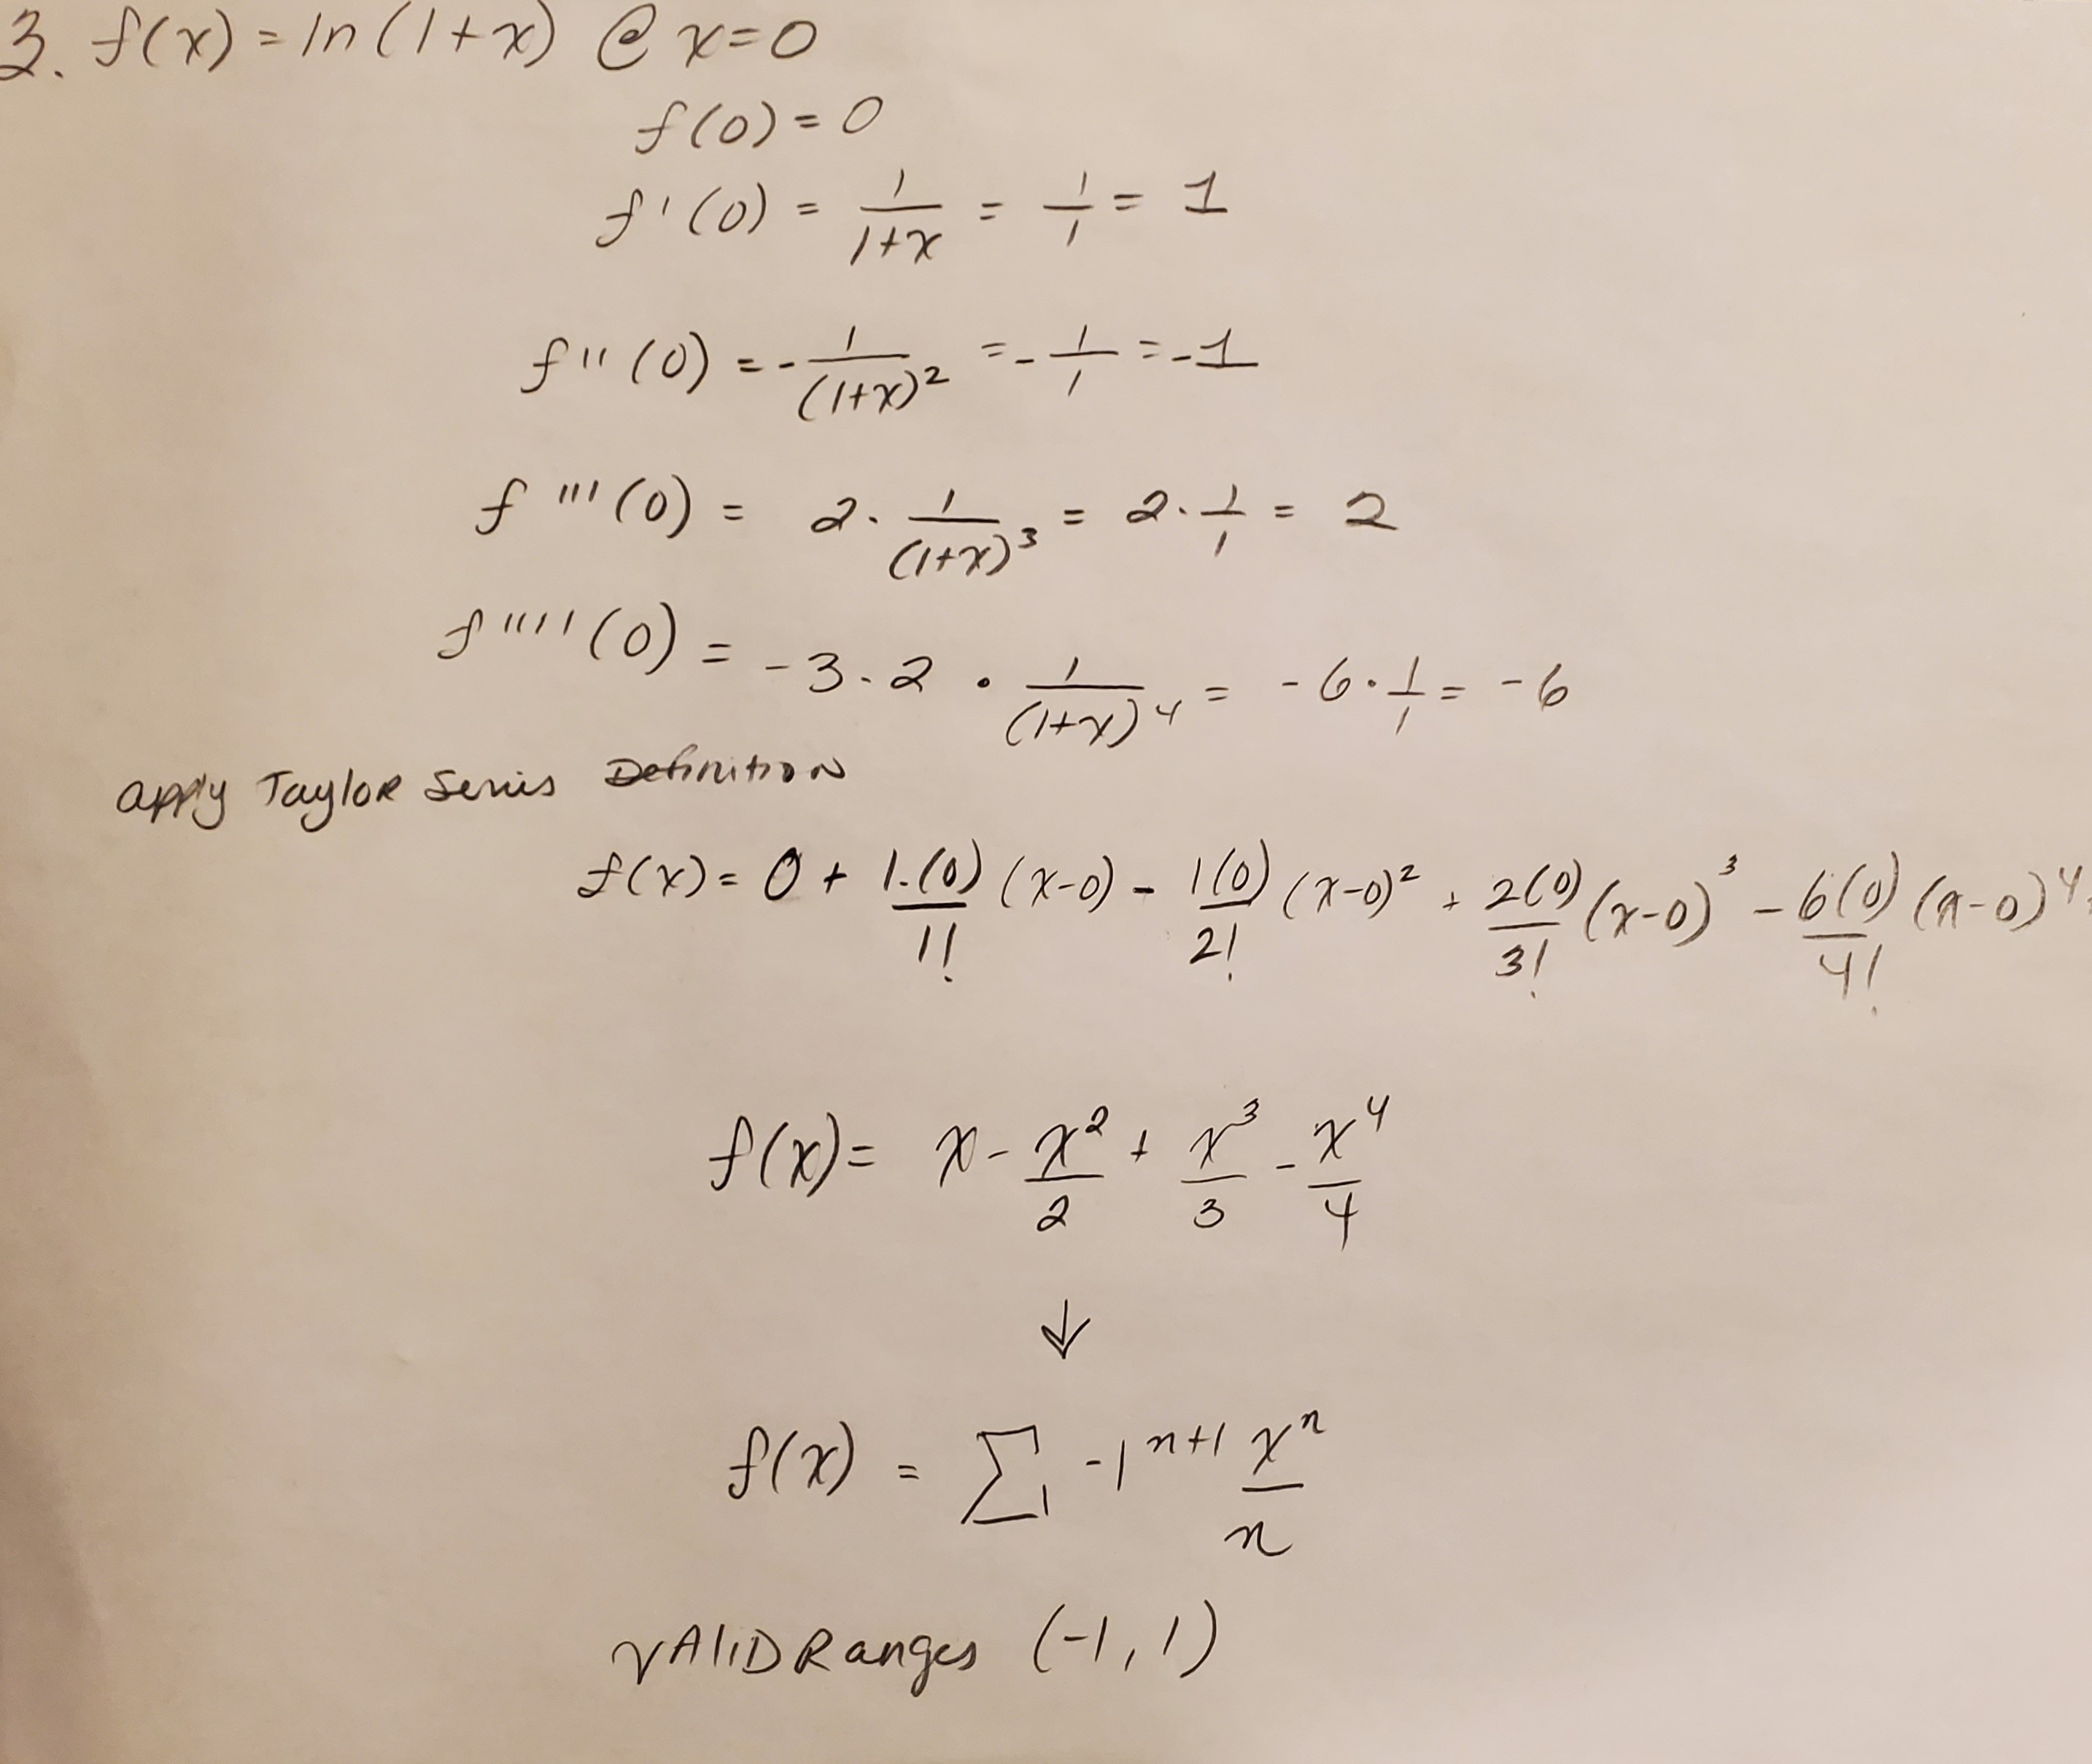 3. f(x) = ln(1+x) @ x=0
f(0) = 0
f'(0) = 1/(1+x) = 1/1 = 1
f''(0) = -1/(1+x)² = -1/1 = -1
f'''(0) = 2·1/(1+x)³ = 2·1/1 = 2
f''''(0) = -3·2·1/(1+x)⁴ = -6·1/1 = -6
apply Taylor Series Definition
f(x) = 0 + 1·(0)/1! (x-0) - 1(0)/2! (x-0)² + 2(0)/3! (x-0)³ - 6(0)/4! (x-0)⁴
f(x) = x - x²/2 + x³/3 - x⁴/4
↓
f(x) = Σ₁ -1ⁿ⁺¹ xⁿ/n
VALID Ranges (-1, 1)